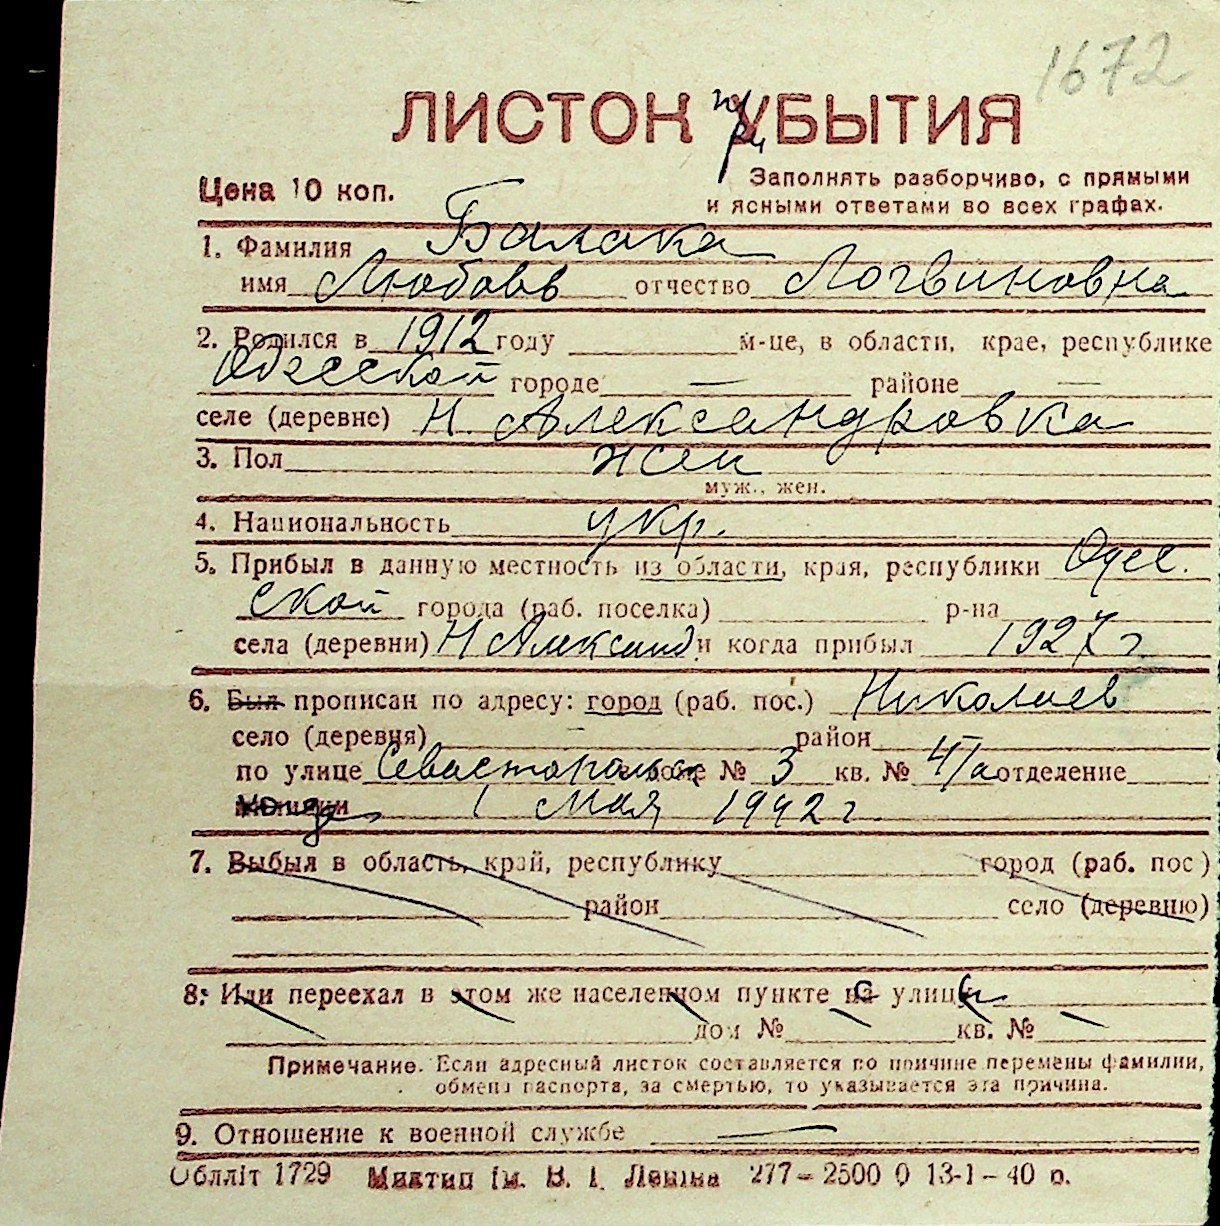 1672
ЛИСТОК прУБЫТИЯ
Цена 10 коп.
Заполнять разборчиво, с прямыми
и ясными ответами во всех графах.
1. Фамилия Балака
имя Любовь отчество Логвиновна
2. Родился в 1912 году м-це, в области, крае, республике
Одесской городе — районе —
селе (деревне) Н. Александровка
3. Пол жен
муж., жен.
4. Национальность укр.
5. Прибыл в данную местность из области, края, республики Одес.
ской города (раб. поселка) р-на
села (деревни) Н Александ и когда прибыл 1927 г
6. Был прописан по адресу: город (раб. пос.) Николаев
село (деревня) — район —
по улице Севастопольск доме № 3 кв. № 4/а отделение
1 Мая 1942 г
7. Выбыл в область, край, республику город (раб. пос)
район село (деревню)
8. Или переехал в этом же населенном пункте с улицы
дом № кв. №
Примечание. Если адресный листок составляется по причине перемены фамилии,
обмена паспорта, за смертью, то указывается эта причина.
9. Отношение к военной службе —
Облліт 1729 Миктип ім. В. І. Леніна 277—2500 0 13-1—40 р.